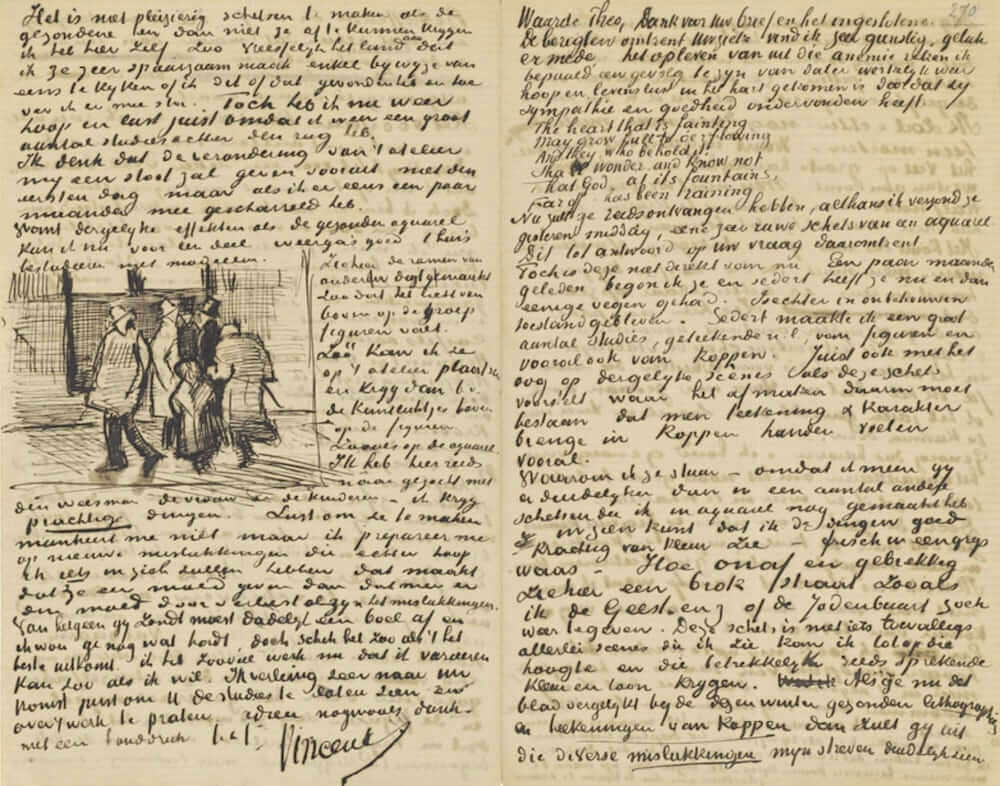 Het is niet pleizierig schetsen te maken als de
gezondene ten dan niet je af te kunnen krijgen
ik heb hier zelf zoo vreesselijk het land aan dat
ik ze zeer spaarzaam maak enkel bij wijze van
eens te kyken of ik dit of dat gevonden heb en hoe
ver ik er mee sta. Toch heb ik nu weer
hoop en lust juist omdat ik weer een groot
aantal studies achter den rug heb.
Ik denk dat de verandering van 't atelier
my een stoot zal geven vooruit met den
eersten dag maar als ik er eens een paar
maanden mee gescharreld heb.
Want dergelijke effekten als de gezonden aquarel
kan ik nu voor een deel weergas goed thuis
bestuderen met modellen.
Ziehier de ramen van
onderen digtgemaakt
zoodat het licht van
boven op de groep
figuren valt.
Zóó kan ik ze
op 't atelier plaatsen
en kryg dan b.v.
de kantlichtjes boven
op de figuren
zooals op de aquarel
Ik heb hier reeds
naar gezocht met
den weesman de vrouw en de kinderen – ik kryg
prachtige dingen. Lust om ze te maken
mankeert me niet maar ik prepareer me
op nieuwe mislukkingen die echter hoop
ik iets in zich zullen hebben dat maakt
dat ze een moed geven dan dat men er
den moed door verliest al zyn het mislukkingen.
Van hetgeen gy zondt moest dadelyk een boel af en
ik wou ge nog wat hadt, doch schik het zoo als 't het
beste uitkomt. ik heb zooveel werk nu dat ik varieeren
kan zoo als ik wil. Ik verlang zeer naar uw
komst juist om U de studies te laten zien en
over 't werk te praten. adieu nogmaals dank –
met een handdruk t.à t.
Vincent
270
Waarde Theo, Dank voor Uw brief en het ingeslotene.
De berigten omtrent Uw zieke vind ik zeer gunstig, geluk
er mede, het opleven van uit die anemie reken ik
bepaald een gevolg te zyn van dat er werkelyk weer
hoop en levenslust in het hart gekomen is doordat zy
sympathie en goedheid ondervonden heeft.
The heart that is fainting
May grow full to overflowing
And they who behold it
Shall wonder and know not
That God, at its fountains,
Far off has been raining
Nu zult ge reeds ontvangen hebben, althans ik verzond ze
gisteren middag, eene zeer ruwe schets van een aquarel
Dit tot antwoord op uw vraag daaromtrent.
Toch is deze niet direkt van nu Een paar maanden
geleden begon ik ze en sedert heeft ze nu en dan
eenige vegen gehad. Is echter in onbehouwen
toestand gebleven. Sedert maakte ik een groot
aantal studies, geteekende n.l., van figuren en
vooral ook van koppen. Juist ook met het
oog op dergelyke scènes als deze schets
voorstelt waar het afmaken daarin moet
bestaan dat men teekening & karakter
brenge in koppen handen voeten
vooral.
Waarom ik ze stuur – omdat ik meen gy
er duidelyker dan in een aantal andere
schetsen die ik in aquarel nog gemaakt heb
in zien kunt dat ik de dingen goed
krachtig van kleur zie – frisch in een grys
waas – Hoe onaf en gebrekkig
ziehier een brok straat zooals
ik de Geest enz of de Jodenbuurt zoek
weer te geven. Deze schets is niet iets toevalligs
allerlei scènes die ik zie kan ik tot op die
hoogte en die betrekkelyk reeds sprekende
kleur en toon krygen. Als ge nu dit
blad vergelykt by de dezen winter gezonden lithographies
en teekeningen van koppen dan zult gy uit
die diverse mislukkingen myn streven duidelyk zien